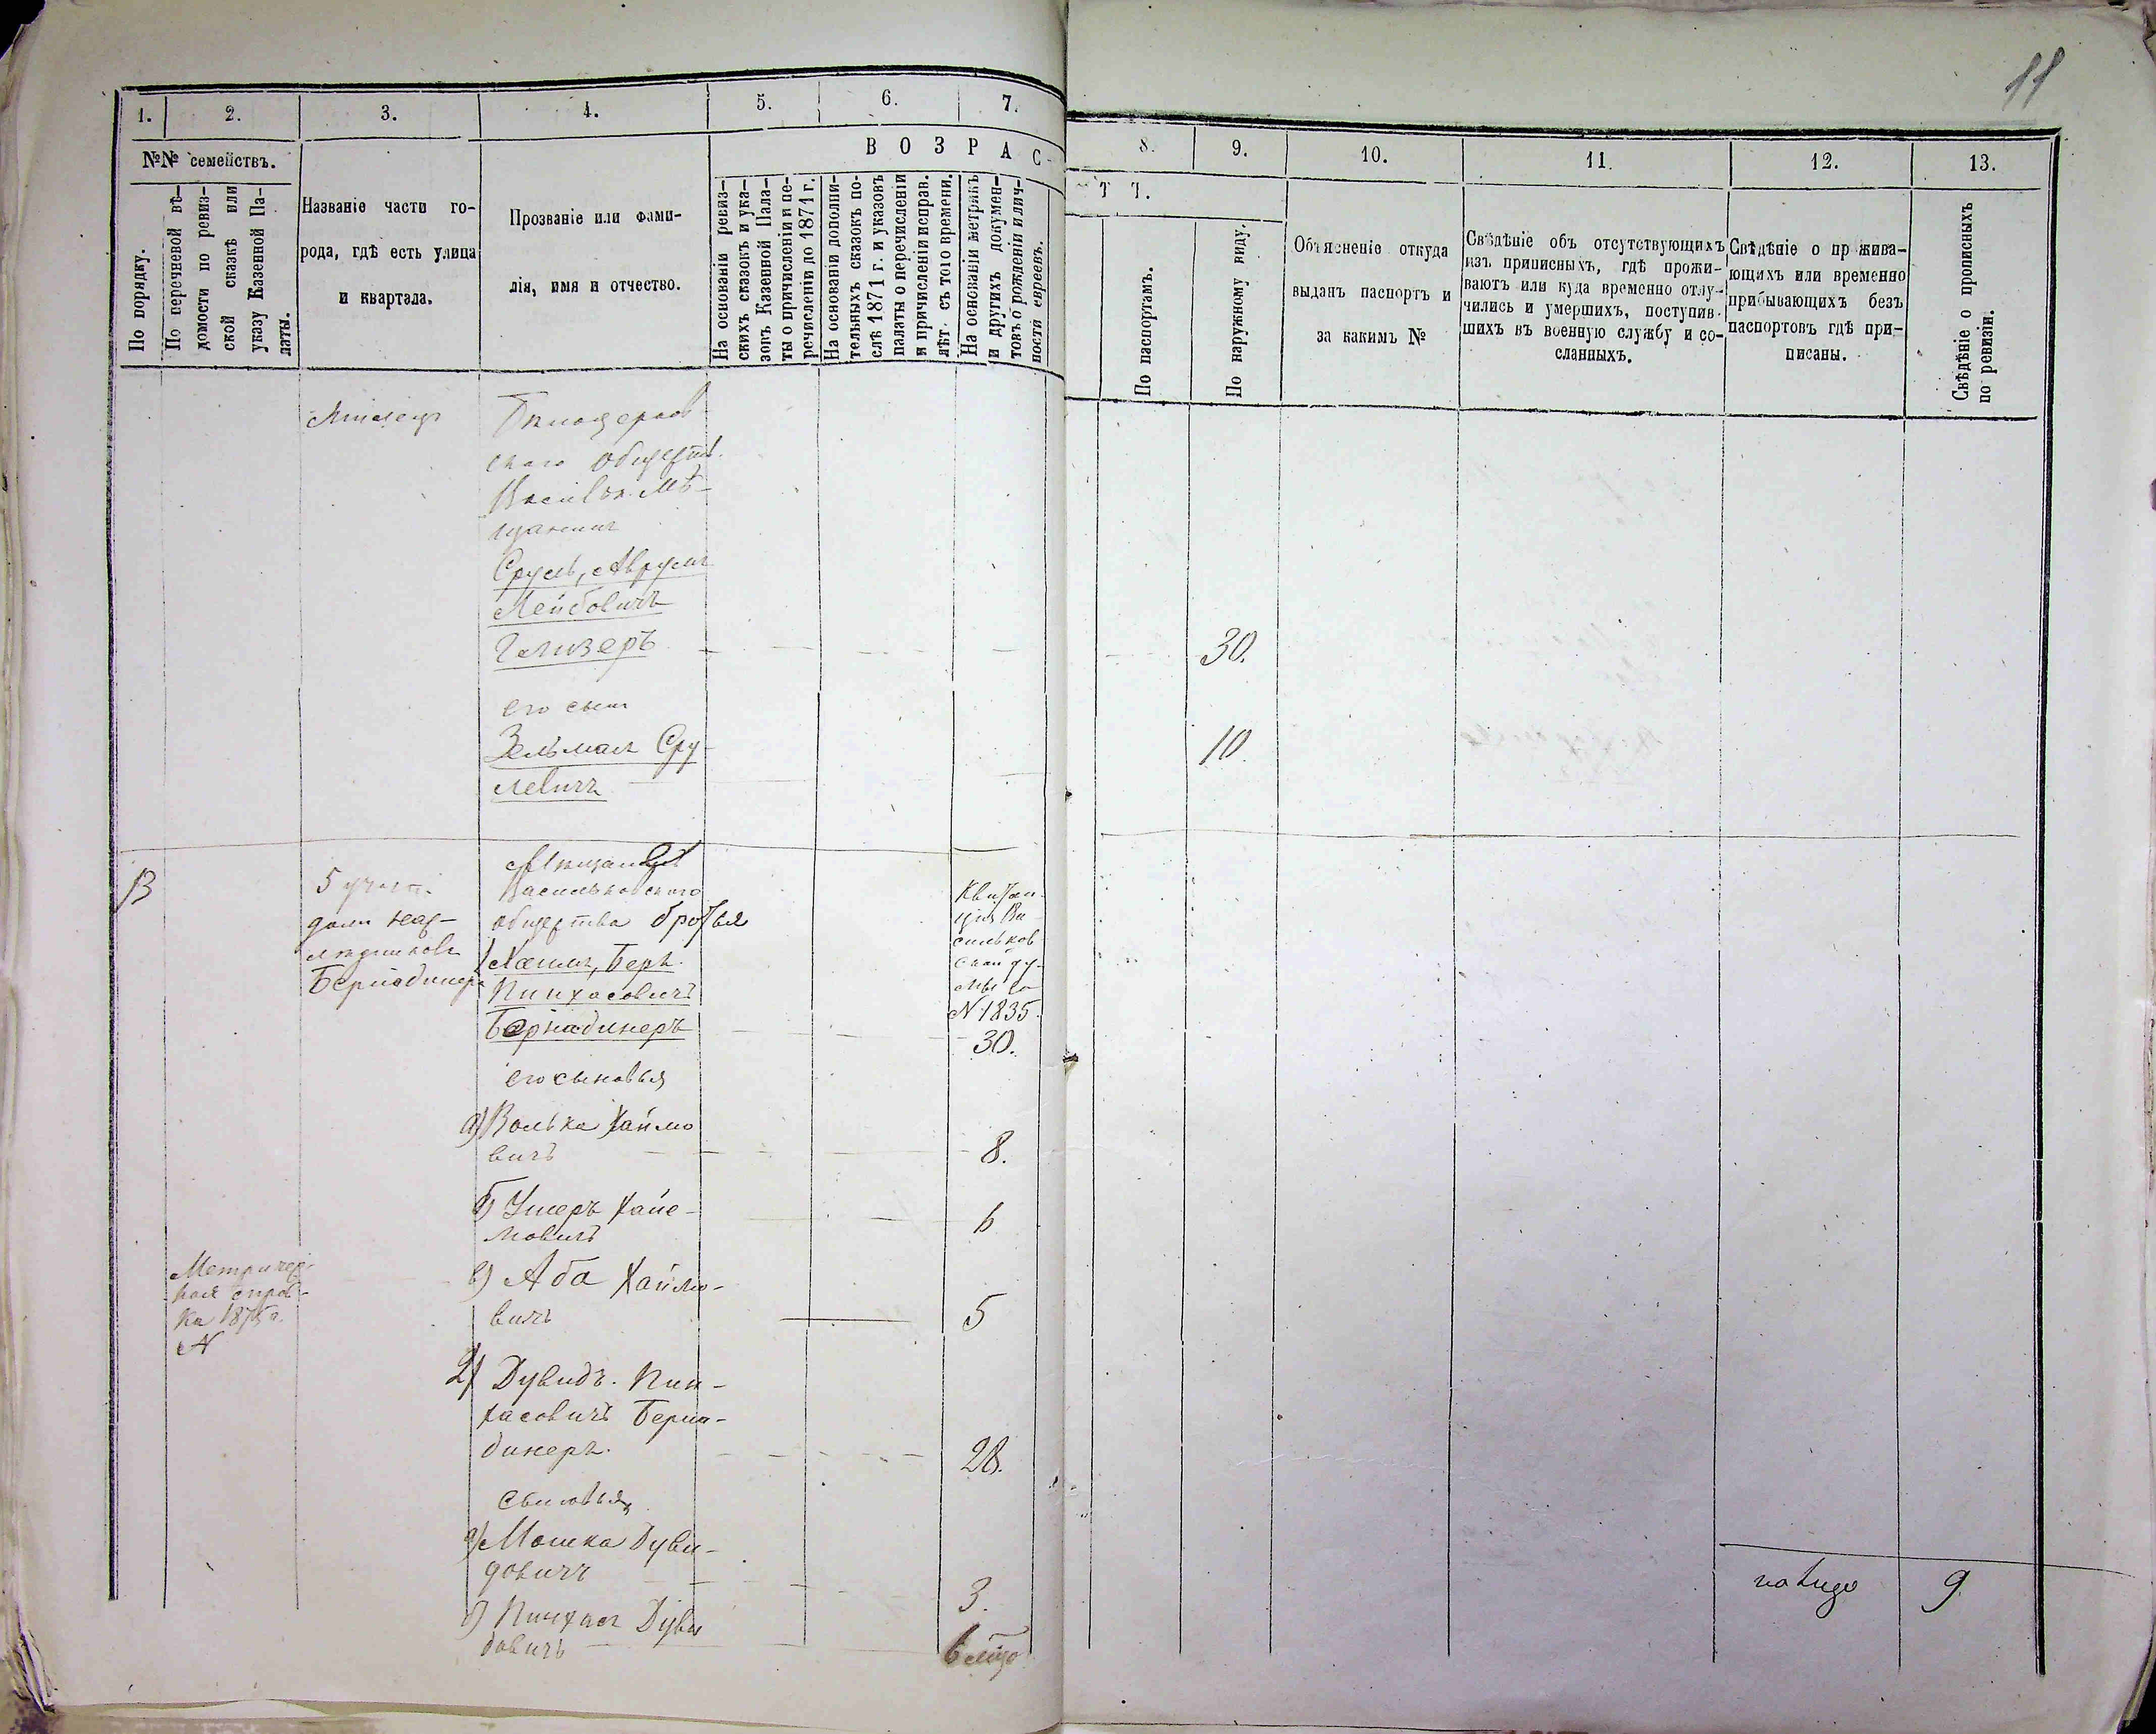 11
1. 2. 3. 4. 5. 6. 7. 8. 9. 10. 11. 12. 13.
№№ семействъ.
По порядку.
По перечневой вѣ-
домости по ревиз-
ской сказкѣ или
указу Казенной Па-
латы.
Названіе части го-
рода, гдѣ есть улица
и квартала.
Прозваніе или Фами-
лія, имя и отчество.
В О З Р А С-
Т Ъ.
На основаніи ревиз-
скихъ сказокъ и ука-
зовъ Казенной Пала-
ты о причисленіи и пе-
речисленіи до 1871 г.
На основаніи дополни-
тельныхъ сказокъ по-
слѣ 1871 г. и указовъ
палаты о перечисленіи
и причисленіи исправ.
лѣт. съ того времени.
На основаніи метрикъ
и другихъ докумен-
товъ о рожденіи и лич-
ности евреевъ.
По паспортамъ.
По наружному виду.
Объясненіе откуда
выданъ паспортъ и
за какимъ №
Свѣдѣніе объ отсутствующихъ
изъ приписныхъ, гдѣ прожи-
ваютъ или куда временно отлу-
чились и умершихъ, поступив-
шихъ въ военную службу и со-
сланныхъ.
Свѣдѣніе о прожива-
ющихъ или временно
прибывающихъ безъ
паспортовъ гдѣ при-
писаны.
Свѣдѣніе о прописныхъ
по ревизіи.
скаго обществ.
Васильк. Мѣ-
щанинъ
Сруль, Аврумъ
Лейбовичъ
Глизеръ 30.
его сынъ
Зельманъ Сру- 10
левичъ
13
5 участ.
домъ нас-
лѣдниковъ
Бернадинера
Васильковскаго
общества братья
1) Хаимъ, Беръ
Пинхасовичъ
Бернадинеръ
Квитан-
ція Ва-
сильков
ской ду-
мы за
№ 1835.
30.
его сыновья
а) Волька Хаймо
вичъ 8.
б) Ушеръ Хайе-
мовичъ 6
Метричес-
кая справ-
ка 1875 г.
№
в) Аба Хаймо-
вичъ 5
2) Дувидъ Пин-
хасовичъ Берна-
динеръ. 28.
сыновья
а) Мошка Дуви-
довичъ 3.
б) Пинхасъ Дуви
довичъ
9